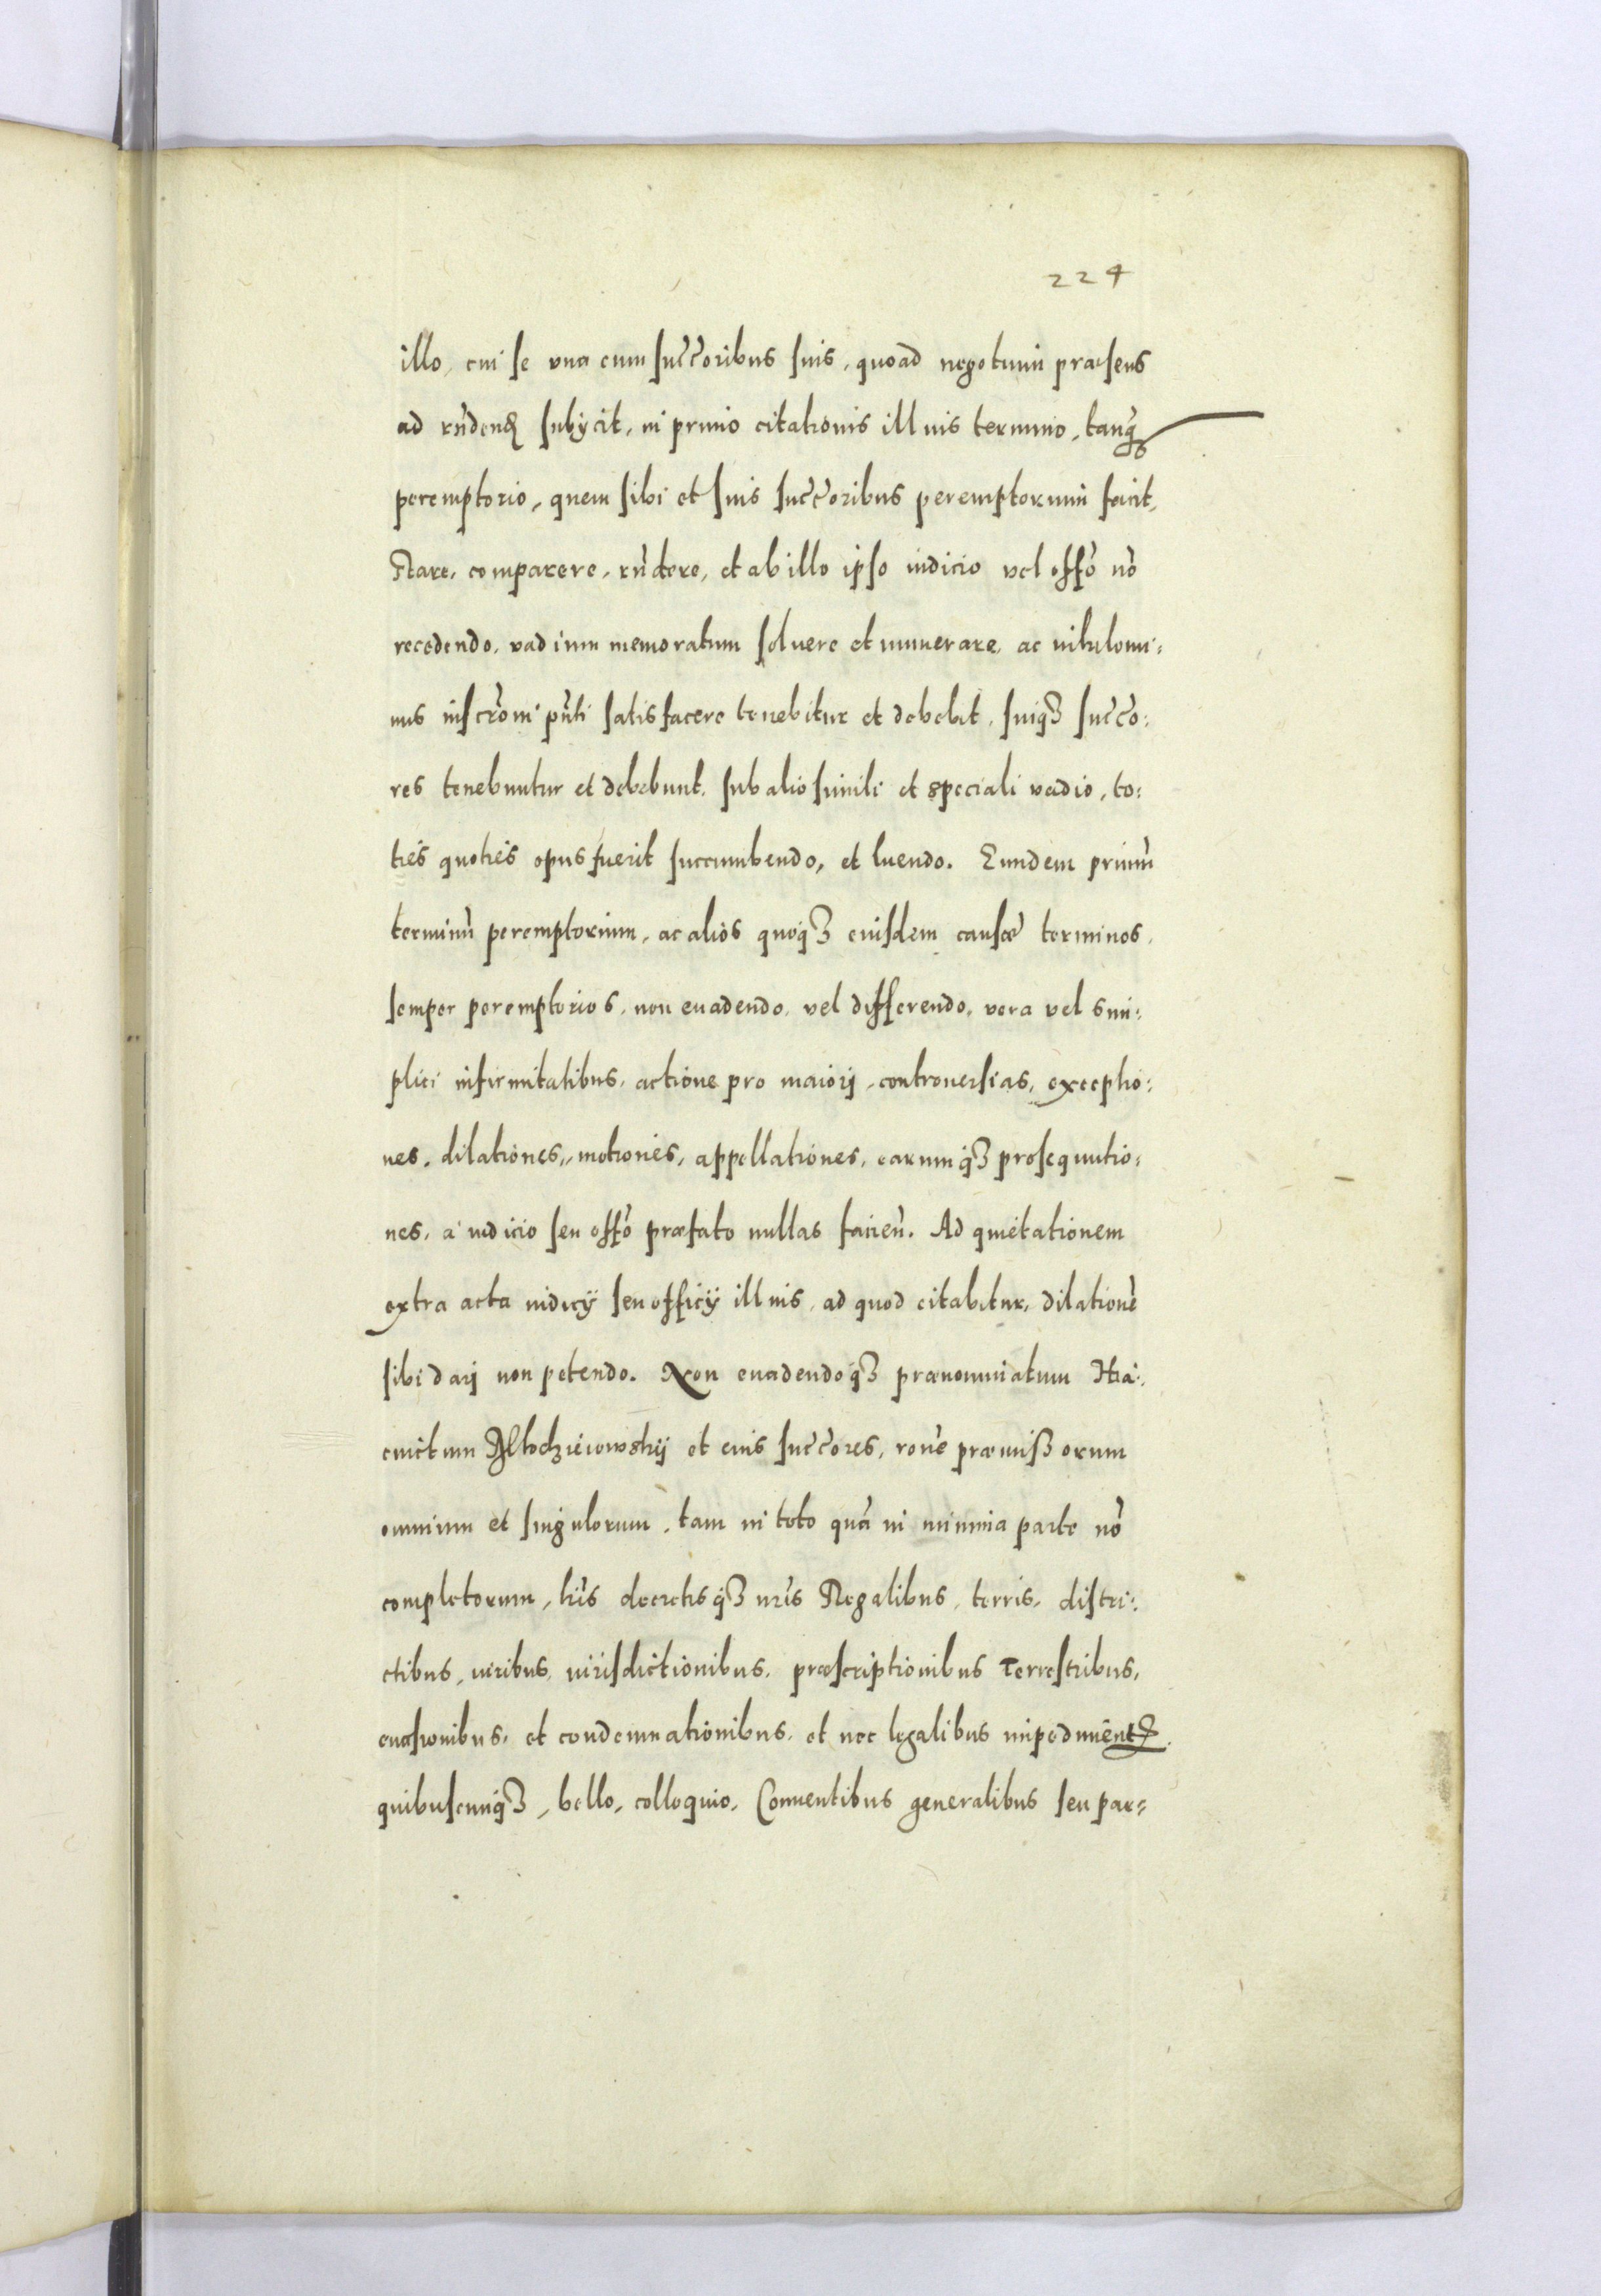 224
illo, cui se una cum succ̃oribus suis, quoad negotium præsens
ad rñdend subijcit, in primo citationis illius termino, tanq̃
peremptorio, quem sibi et suis succ̃oribus peremptorium facit,
stare, comparere, rñdere, et ab illo ipso iudicio vel offõ nõ
recedendo, vadium memoratum soluere et numerare, ac nihilomi:
nus inscrõni pñti satisfacere tenebitur et debebit, suiq3 succo:
res tenebuntur et debebunt, sub alio simili et speciali vadio, to:
ties quoties opus fuerit succumbendo, et luendo. Eundem primũ
terminũ peremptorium, ac alios quoq3 eiusdem causæ terminos,
semper peremptorios, non euadendo, vel differendo, vera vel sim:
plici infirmitatibus, actione pro maiori, controuersias, exceptio:
nes, dilationes, motiones, appellationes, earumq3 prosequutio:
nes, a iudicio seu offõ præfato nullas facieñ. Ad quietationem
extra acta iudicij seu officij illius, ad quod citabitur, dilationẽ
sibi dari non petendo. Non euadendoq3 prænominatum Hia:
cinctum Młodzieiowskij et eius succ̃ores, rõne præmissorum
omnium et singulorum, tam in toto quã in minima parte nõ
completorum, lris decretisq3 nris Regalibus, terris, distri:
ctibus, iuribus, iurisdictionibus, præscriptionibus Terrestribus,
euasionibus, et condemnationibus, et nec legalibus impedimẽnt
quibuscunq3, bello, colloquio, Conuentibus generalibus seu par=